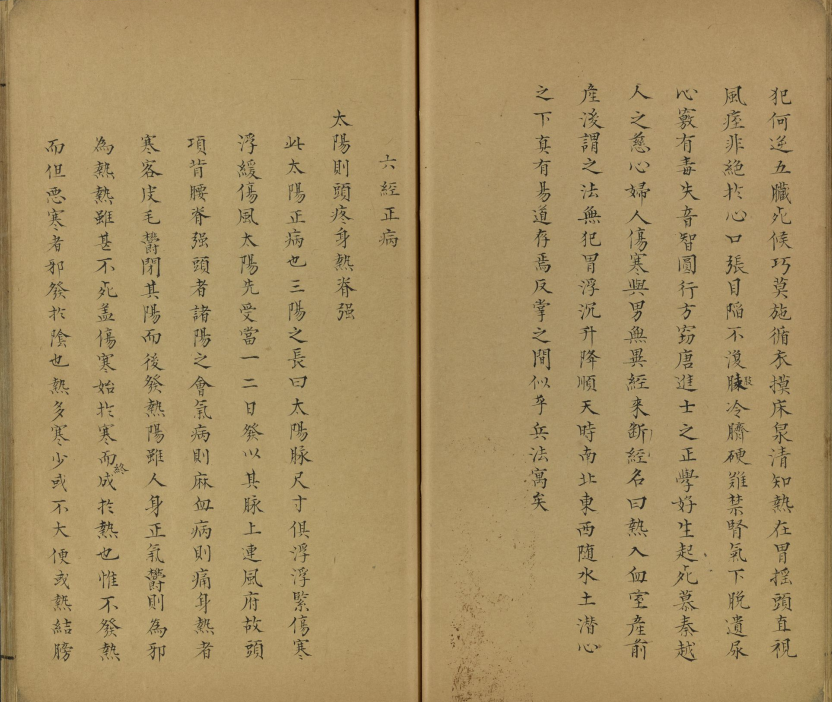 犯何逆五臟死候巧莫施循衣摸床泉清知熱在胃揺頭直視
風痓非絶扵心口張目陥不復腖冷臍硬雖禁腎氣下脫遺尿
心竅有毒失音智圓行方窈唐進士之正學好生起死慕秦越
人之慈心婦人傷寒與男無異經来断經名曰熱入血室產前
產後謂之法無犯胃浮沉升降順天時南北東西随水土潜心
之下真有易道存焉反掌之間似乎兵法寓矣
六經正病
太陽則頭疼身熱脊强
此太陽正病也三陽之長曰太陽脉尺寸俱浮浮緊傷寒
浮緩傷風太陽先受當一二日發以其脉上連風府故頭
項背腰脊强頭者諸陽之會氣病則麻血病則痛身熱者
寒客皮毛欝閉其陽而後發熱陽雖人身正氣欝則為邪
為熱熱雖甚不死盖傷寒始扵寒而成終扵熱也惟不發熱
而但悪寒者邪發扵隂也熱多寒少或不大便或熱結膀